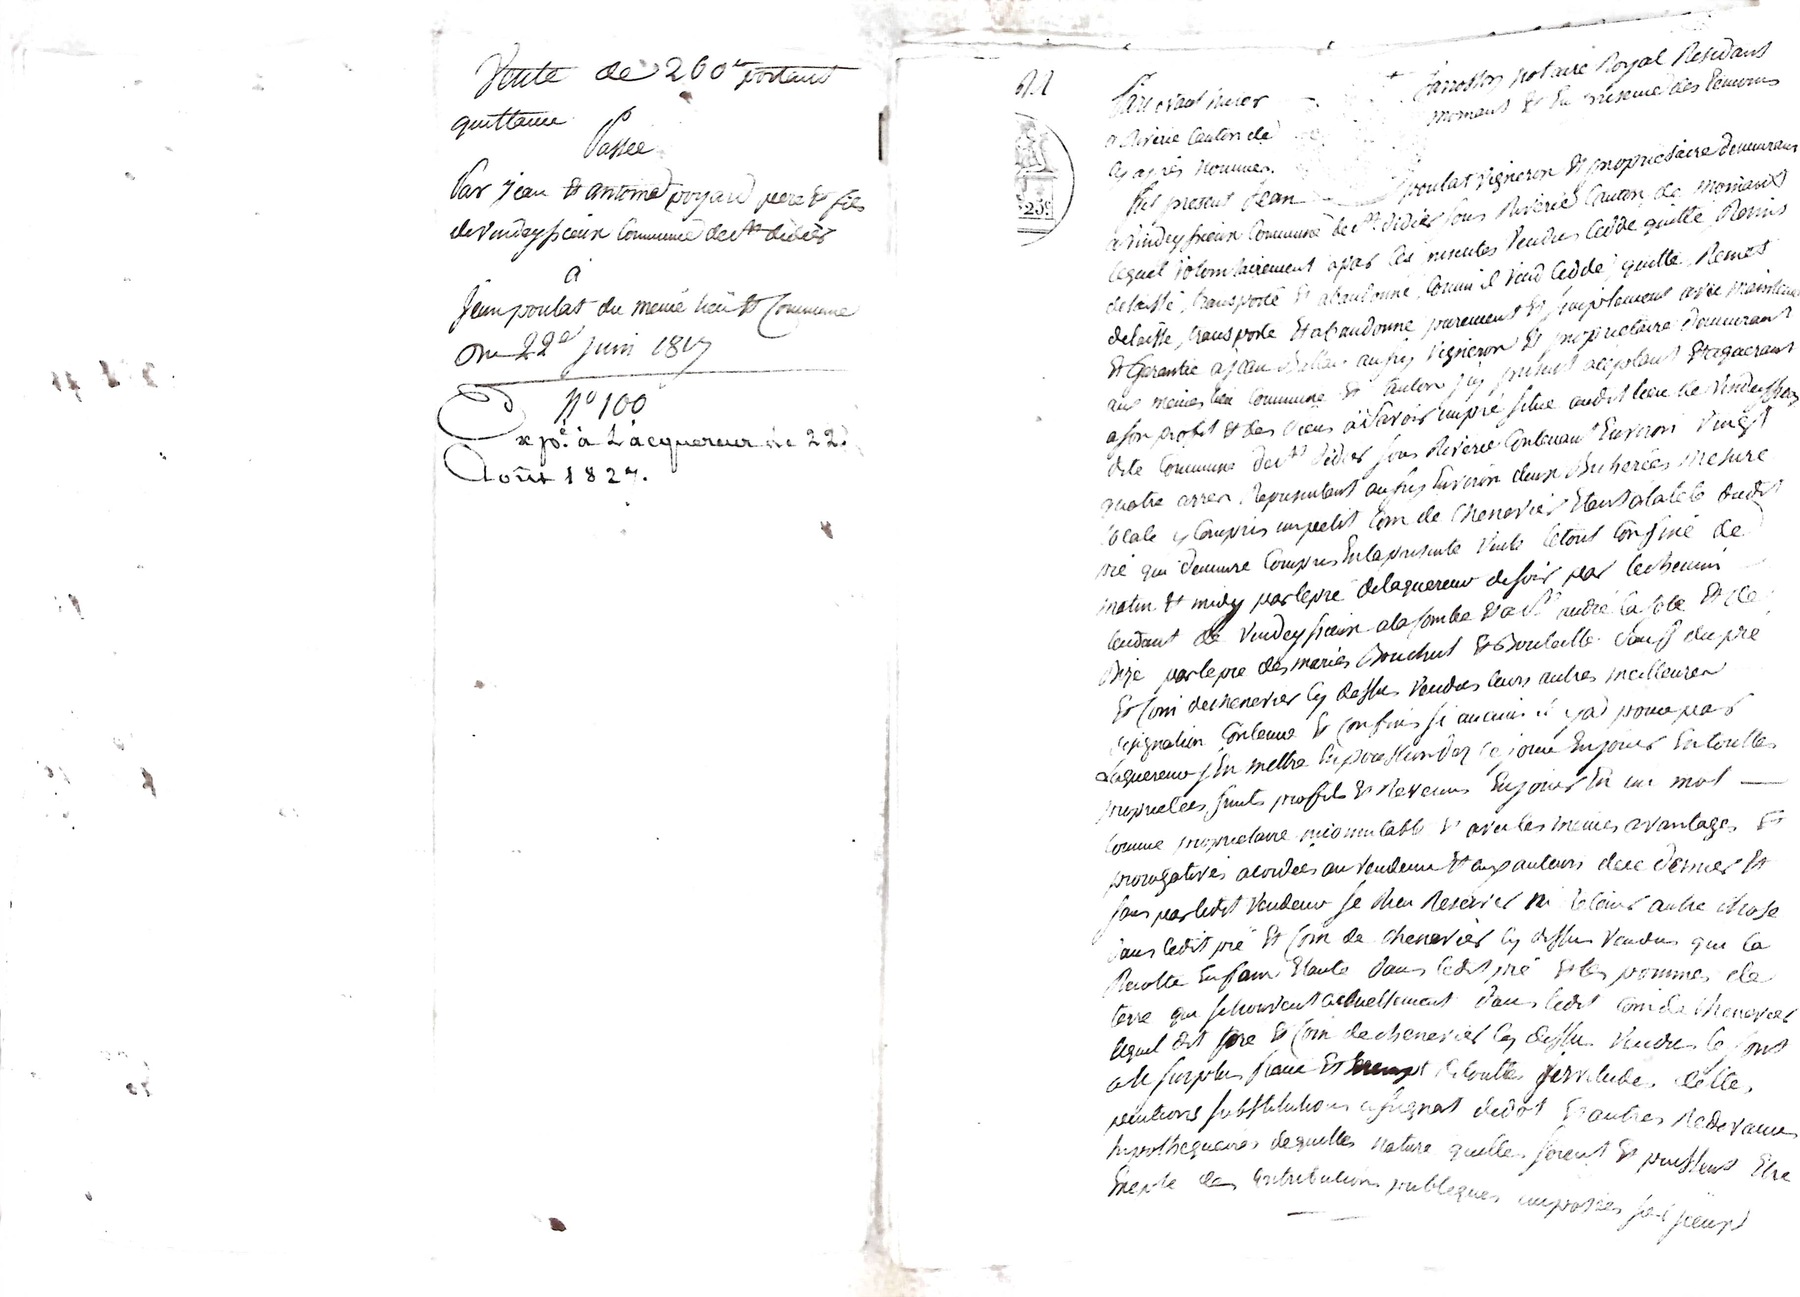 Vente de 260# portant
quittance
Passée
Par Jean et antoine poyard pere et fils
de Vindeyssieux Commune de St didier
à
Jean poulat du meme lieu et Commune
Du 22e juin 1817
No 100
Expé. à L'acquereur le 22
Août 1827.
25c
Pardevant
notaire Royal Residant
a Riverie Canton de mornant et En presence des temoins
cy apres nommes.
fut present Jean poulat vigneron et proprietaire demeurant
a Vindeyssieux Commune de St didier sous Riverie Canton de mornant
lequel volontairement a par les presentes Vendu Cedde quitte Remis
delaissé, transporté et abandonné, Comme il vend Cedde quitte, Remet
delaisse, transporte et abandonne purement et simplement avec maintenue
et Garantie a Jean aussy vigneron et proprietaire demeurant
aux memes lieu Commune et Canton icy present acceptant et aquerant
a son profit et des siens a Savoir un pré situe audit lieu de Vindeyssieux
dite Commune de St didier sous Riverie Contenant Environ Vingt
quatre arres, representant aussy Environ deux Bicherées mesure
locale y Compris un petit Coin de Chenevier Etant a Coté dudit
pré qui demeure Compris En la presente Vente le tout Confiné de
matin et midy par le pré de laquereur de soir par le chemin
tendant de Vindeyssieux a la Combe et a St andré la Cote et de
Bize par le pré des mariés Bouchut et Bouteille sauf du pré
et Coin de chenevier cy dessus Vendus leurs autres meilleures
designation Contenue et Confins si aucuns il y a pour par
Laquereur s'En mettre En possession des ce jour En jouir En toutes
proprietées, fruits proffits et Revenus En jouir En un mot
Comme proprietaire incomutable et avec les memes avantages et
prerogatives acordées au vendeur et aux auteurs de ce dernier et
sans par ledit Vendeur se Rien Reserver ni Retenir autre chose
dans ledit pré et Coin de chenevier cy dessus Vendus que la
Recolte En foin Etante dans ledit pré et les pommes de
terre qui se trouvent actuellement dans ledit Coin de Chenevier
lequel dit pré et Coin de chenevier cy dessus Vendus le sont
au surplus franc et Exempt de toutes servitudes, dettes,
pentions substitutions assignat de dot et autres Redevances
hypothequaires de quelles nature quelles soient et puissent Etre
Excepté des Contributions publiques imposées